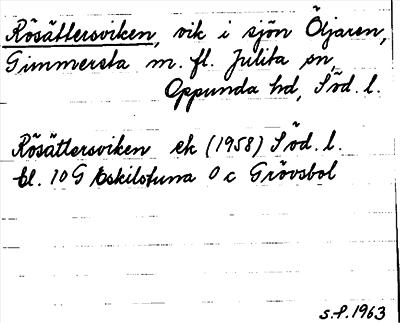 Rösättersviken, vik i sjön Öljaren,
Gimmersta m. fl. Julita sn,
Oppunda hd, Söd. l.
Rösättersviken ek (1958) Söd. l.
bl. 10 G Eskilstuna 0 c Grövsbol
S.P. 1963